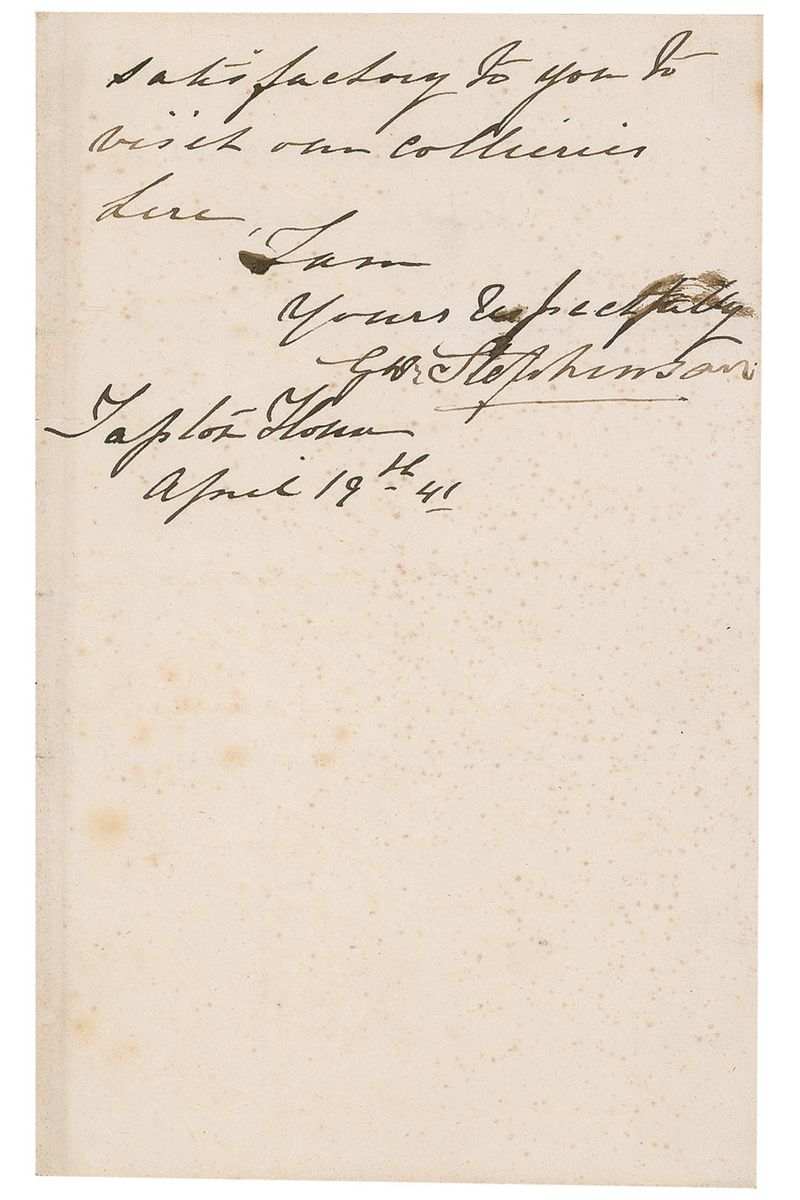 satisfactory to you to
visit our collieries
here,
I am
Yours respectfully
Geo Stephenson
Tapton House
April 19th 41